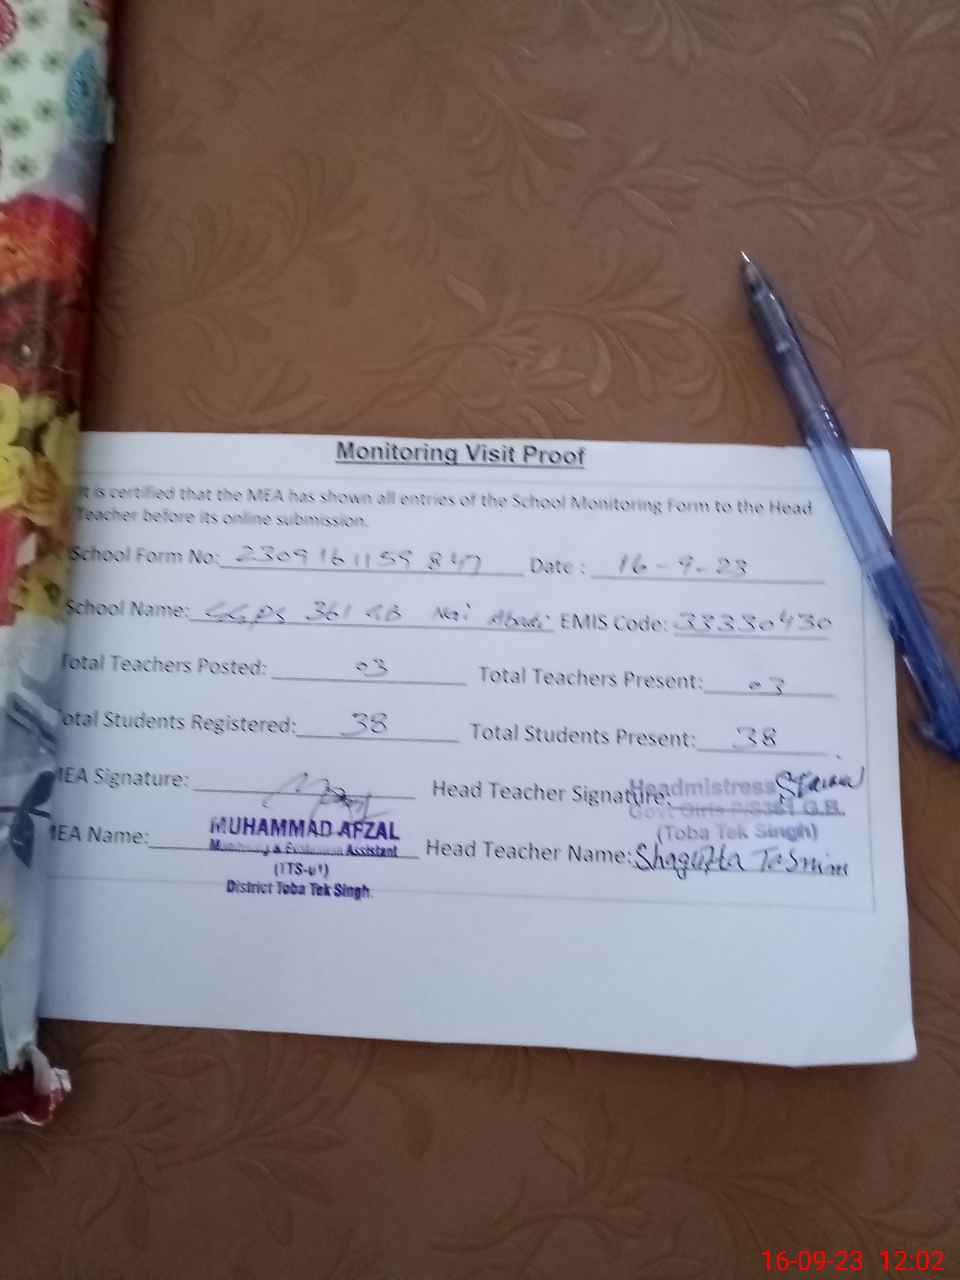 Monitoring Visit Proof
It is certified that the MEA has shown all entries of the School Monitoring Form to the Head
Teacher before its online submission.
School Form No: 2309161159847 Date : 16-9-23
School Name: GGPS 361 GB Nai Abadi EMIS Code: 33330430
Total Teachers Posted: 03 Total Teachers Present: 03
Total Students Registered: 38 Total Students Present: 38
MEA Signature: Head Teacher Signature:
Headmistress
Govt Girls P/S361 G.B.
(Toba Tek Singh)
MEA Name: MUHAMMAD AFZAL
Monitoring & Evaluation Assistant
(TTS-01)
District Toba Tek Singh.
Head Teacher Name: Shagufta Tasmim
16-09-23 12:02